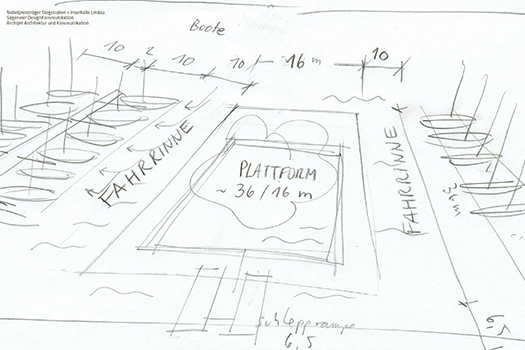 Nobelpreisträger Stegstudien + Inselhalle Lindau
Sägenvier DesignKommunikation
Archipel Architektur und Kommunikation
Boote
10 2 10 10 16 m 10
FAHRRINNE
PLATTFORM
~ 36/16 m
FAHRRINNE
schlepprampe
6,5
6,5